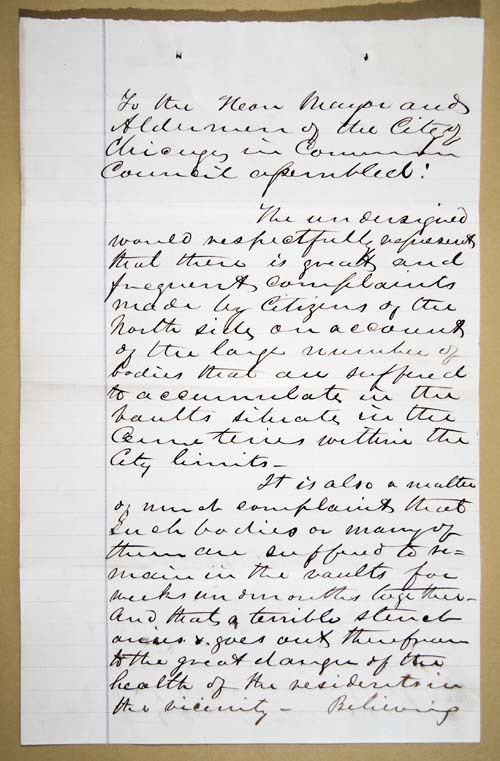 To the Hon Mayor and
Aldermen of the City of
Chicago in Common
Council assembled:
The undersigned
would respectfully represent
that there is great and
frequent complaints
made by Citizens of the
North side on account
of the large number of
bodies that are suffered
to accumulate in the
vaults situate in the
Cemeteries within the
City limits—
It is also a matter
of much complaint that
such bodies or many of
them are suffered to re=
main in the vaults for
weeks and months together—
And that a terrible stench
arises & goes out therefrom
to the great danger of the
health of the residents in
the vicinity— Believing